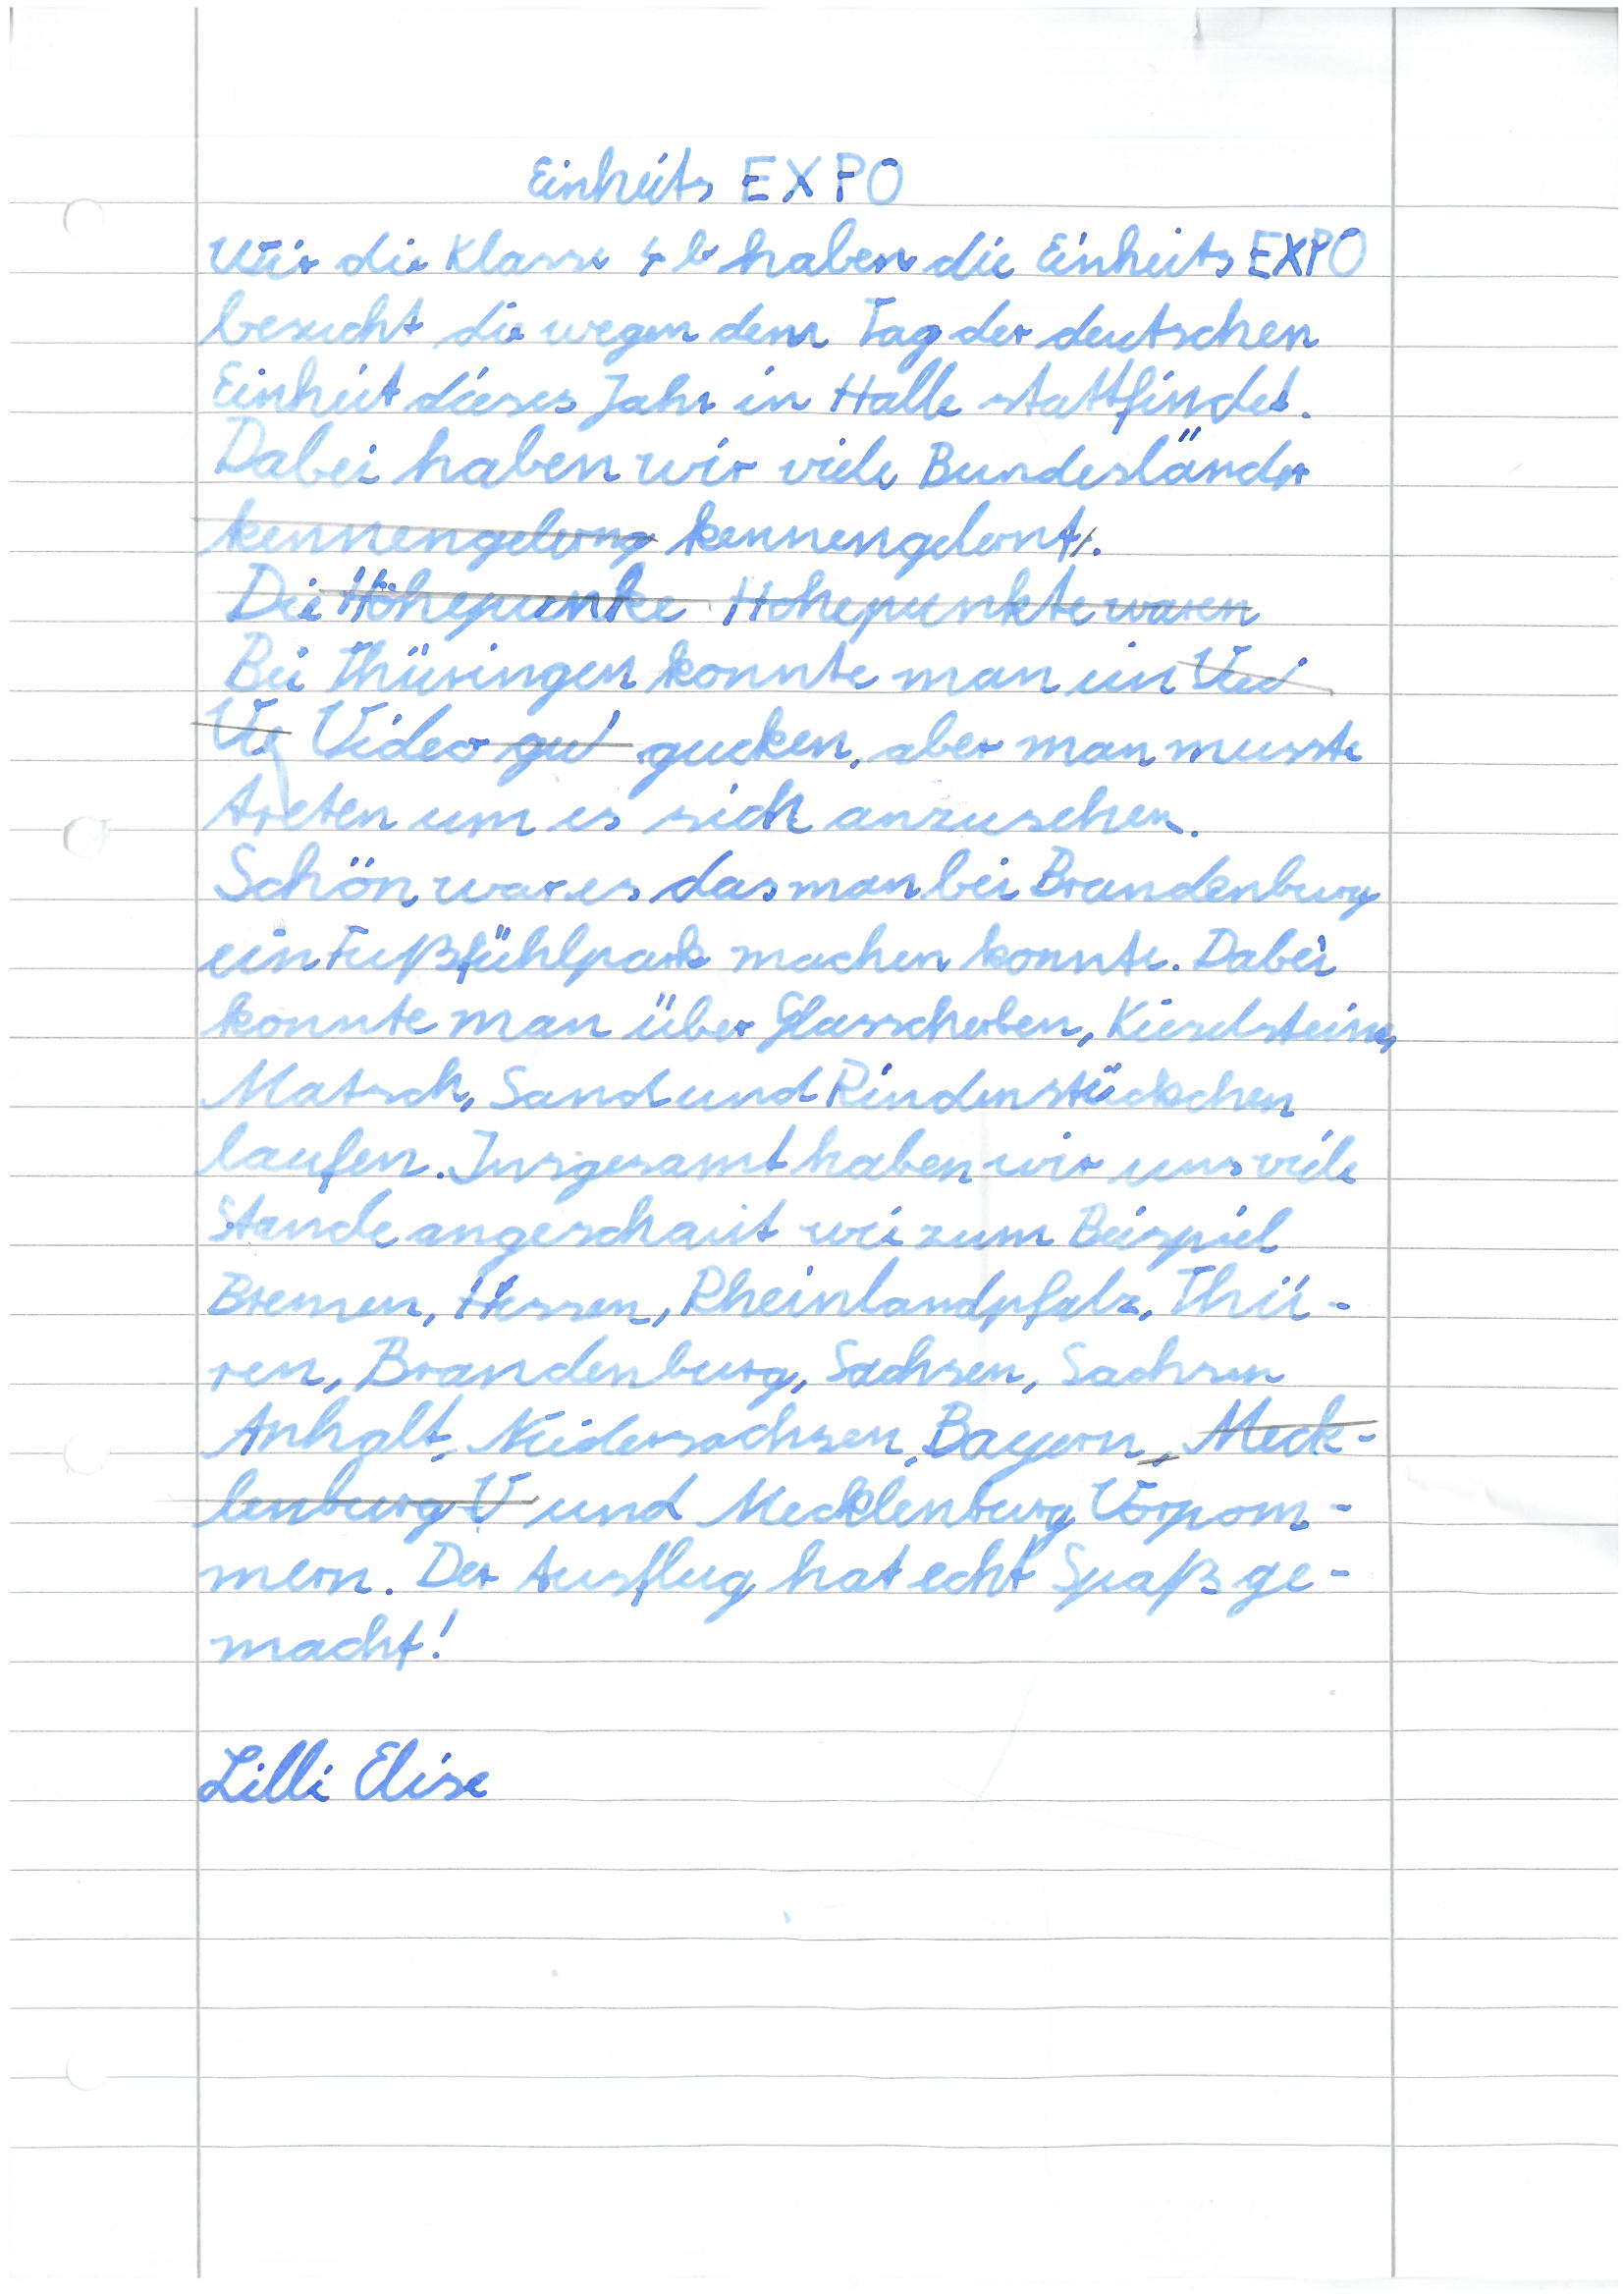 Einheits EXPO
Wir die Klasse 4b haben die Einheits EXPO
besucht die wegen dem Tag der deutschen
Einheit dieses Jahr in Halle stattfindet.
Dabei haben wir viele Bundesländer
kennengelerng kennengelernt.
Die Höhepunke Hohepunkte waren
Bei Thüringen konnte man ein Vied
Vie Video gu gucken, aber man musste
treten um es sich anzusehen.
Schön war es das man bei Brandenburg
ein Fußfühlpark machen konnte. Dabei
konnte man über Glasscherben, Kieselsteine,
Matsch, Sand und Rindenstückchen
laufen. Insgesamt haben wir uns viele
Stande angeschaut wie zum Beispiel
Bremen, Hessen, Rheinlandpfalz, Thü-
ren, Brandenburg, Sachsen, Sachsen
Anhalt, Niedersachsen, Bayern, Meck-
lenburg V und Mecklenburg Vorpom-
mern. Der Ausflug hat echt Spaß ge-
macht!
Lilli Elise